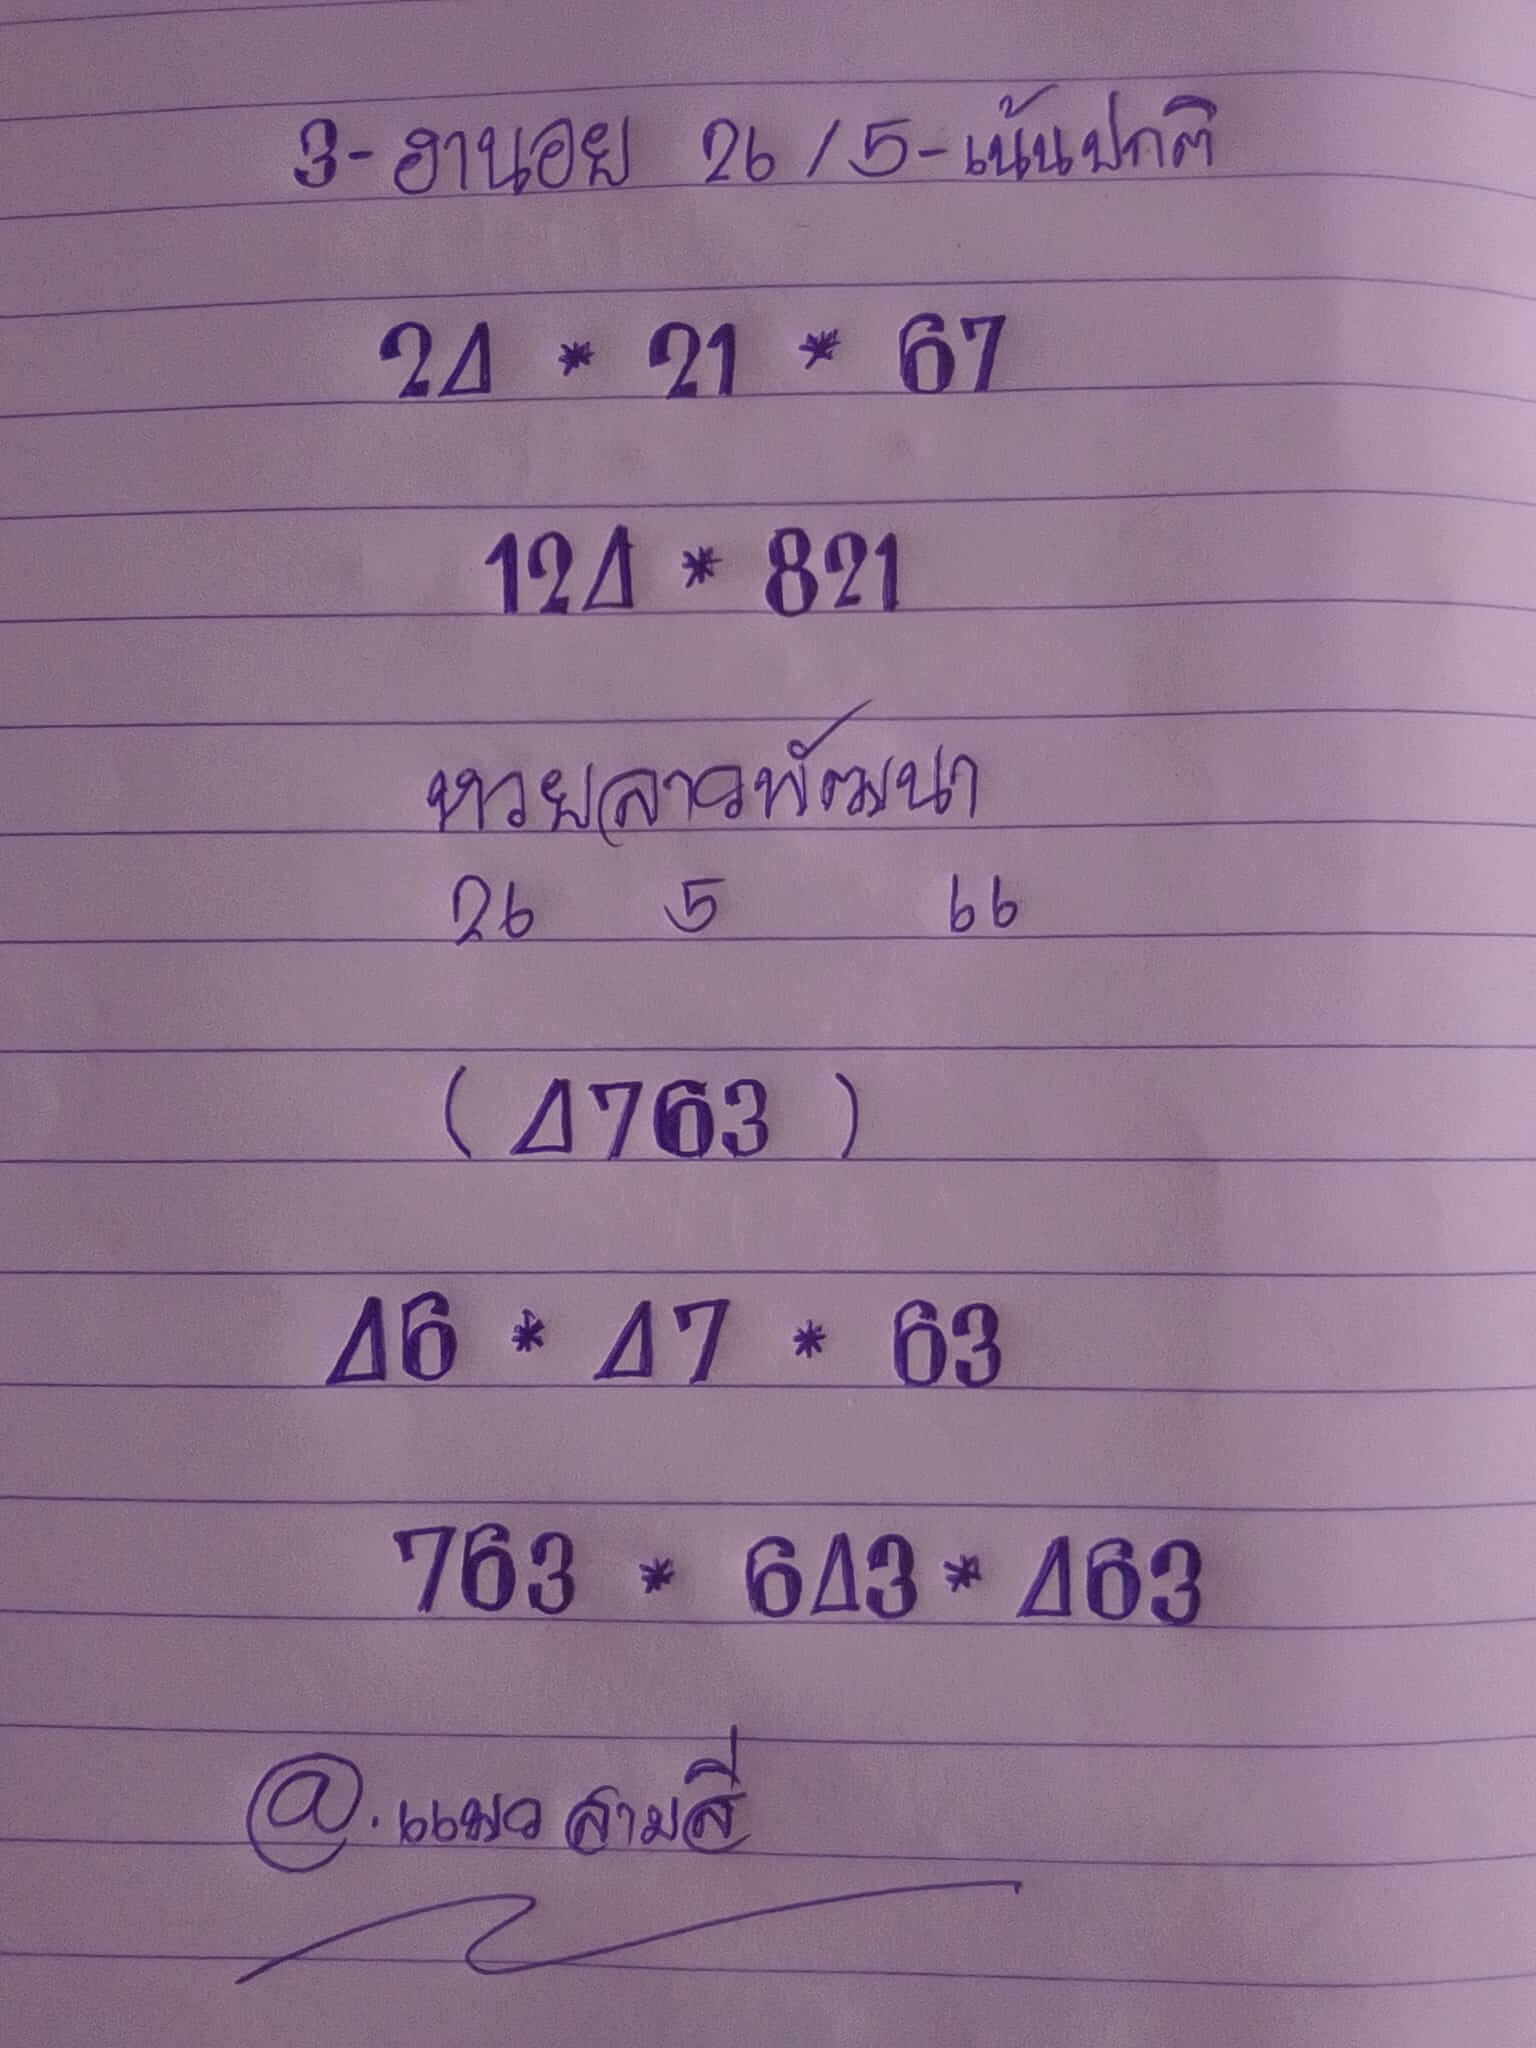 3-ฮานอย 26/5-เน้นปกติ
24 * 21 * 67
124 * 821
หวยลาวพัฒนา
26 5 66
( 4763 )
46 * 47 * 63
763 * 643 * 463
@.แมวสามสี